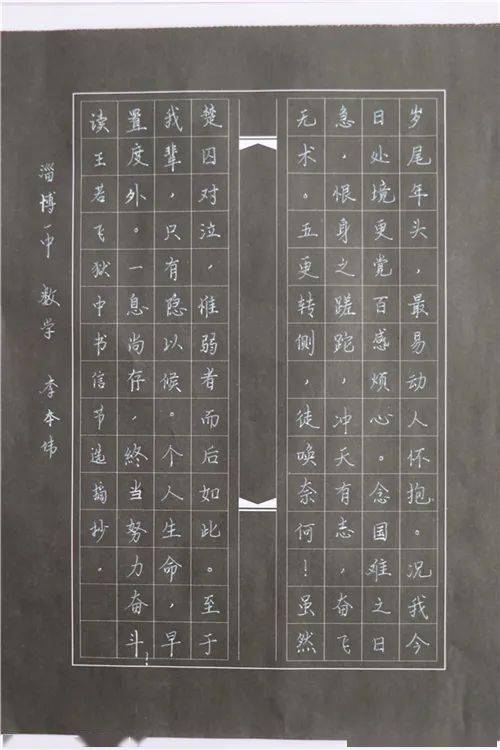 岁尾年头，最易动人怀抱。况我今
日处境更觉百感烦心。念国难之日
急，恨身之蹉跎，冲天有志，奋飞
无术。五更转侧，徒唤奈何！虽然
楚囚对泣，惟弱者而后如此。至于
我辈，只有隐以候。个人生命，早
置度外。一息尚存，终当努力奋斗！
读王若飞狱中书信节选摘抄。
淄博一中 数学 李本炜